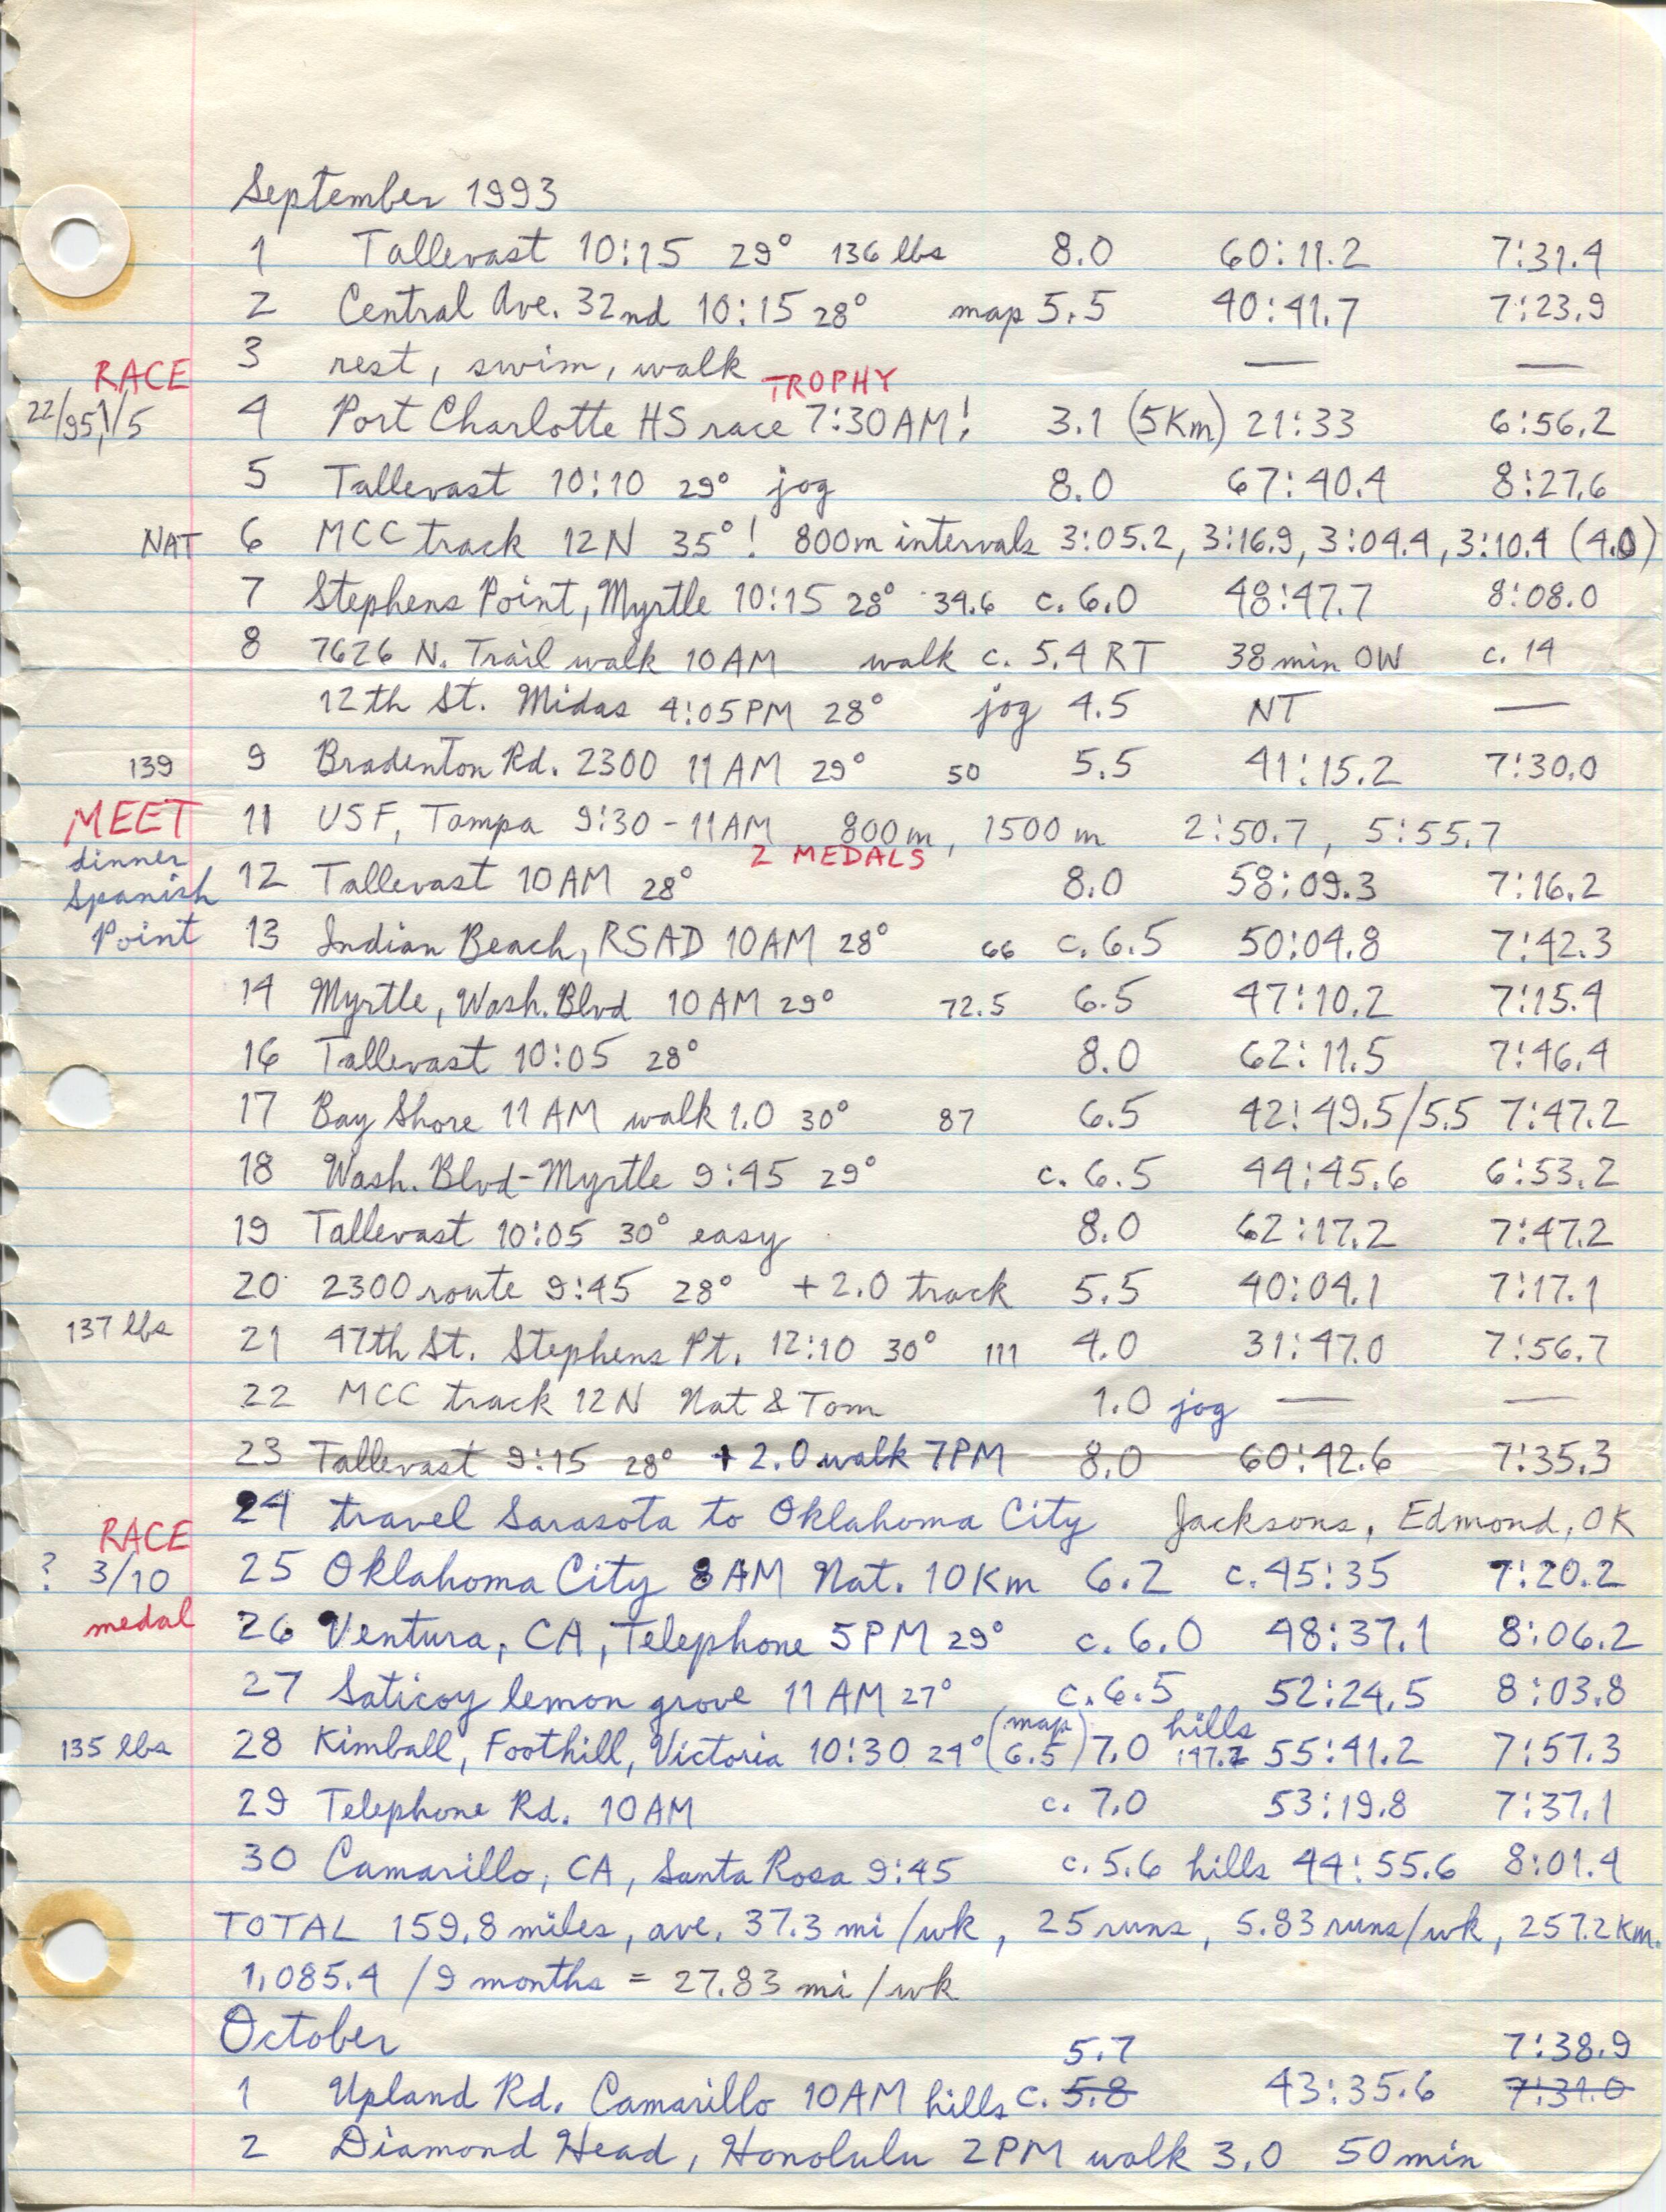 September 1993
1 Tallevast 10:15 29° 136 lbs 8.0 60:11.2 7:31.4
2 Central Ave. 32nd 10:15 28° map 5.5 40:41.7 7:23.9
3 rest, swim, walk — —
RACE TROPHY
22/95, 1/5 4 Port Charlotte HS race 7:30AM! 3.1 (5Km) 21:33 6:56.2
5 Tallevast 10:10 29° jog 8.0 67:40.4 8:27.6
NAT 6 MCC track 12N 35°! 800m intervals 3:05.2, 3:16.9, 3:04.4, 3:10.4 (4.0)
7 Stephens Point, Myrtle 10:15 28° 39.6 c. 6.0 48:47.7 8:08.0
8 7626 N. Trail walk 10AM walk c. 5.4 RT 38 min OW c. 14
12th St. Midas 4:05PM 28° jog 4.5 NT —
139 9 Bradenton Rd. 2300 11AM 29° 50 5.5 41:15.2 7:30.0
MEET 11 USF, Tampa 9:30-11AM 800m, 1500m 2:50.7, 5:55.7
dinner 2 MEDALS
Spanish 12 Tallevast 10AM 28° 8.0 58:09.3 7:16.2
Point 13 Indian Beach, RSAD 10AM 28° 66 c. 6.5 50:04.8 7:42.3
14 Myrtle, Wash. Blvd 10AM 29° 72.5 6.5 47:10.2 7:15.4
16 Tallevast 10:05 28° 8.0 62:11.5 7:46.4
17 Bay Shore 11AM walk 1.0 30° 87 6.5 42:49.5/5.5 7:47.2
18 Wash. Blvd-Myrtle 9:45 29° c. 6.5 44:45.6 6:53.2
19 Tallevast 10:05 30° easy 8.0 62:17.2 7:47.2
20 2300 route 9:45 28° +2.0 track 5.5 40:04.1 7:17.1
137 lbs 21 47th St. Stephens Pt. 12:10 30° 111 4.0 31:47.0 7:56.7
22 MCC track 12N Nat & Tom 1.0 jog — —
23 Tallevast 9:15 28° +2.0 walk 7PM 8.0 60:42.6 7:35.3
24 travel Sarasota to Oklahoma City Jacksons, Edmond, OK
RACE
? 3/10 25 Oklahoma City 8AM Nat. 10Km 6.2 c. 45:35 7:20.2
medal 26 Ventura, CA, Telephone 5PM 29° c. 6.0 48:37.1 8:06.2
27 Saticoy lemon grove 11AM 27° c. 6.5 52:24.5 8:03.8
135 lbs 28 Kimball, Foothill, Victoria 10:30 24° (map 6.5) 7.0 hills 147.2 55:41.2 7:57.3
29 Telephone Rd. 10AM c. 7.0 53:19.8 7:37.1
30 Camarillo, CA, Santa Rosa 9:45 c. 5.6 hills 44:55.6 8:01.4
TOTAL 159.8 miles, ave. 37.3 mi/wk, 25 runs, 5.83 runs/wk, 257.2 Km.
1,085.4 /9 months = 27.83 mi/wk
October
5.7 7:38.9
1 Upland Rd. Camarillo 10AM hills c. 5.8 43:35.6 7:31.0
2 Diamond Head, Honolulu 2PM walk 3.0 50 min